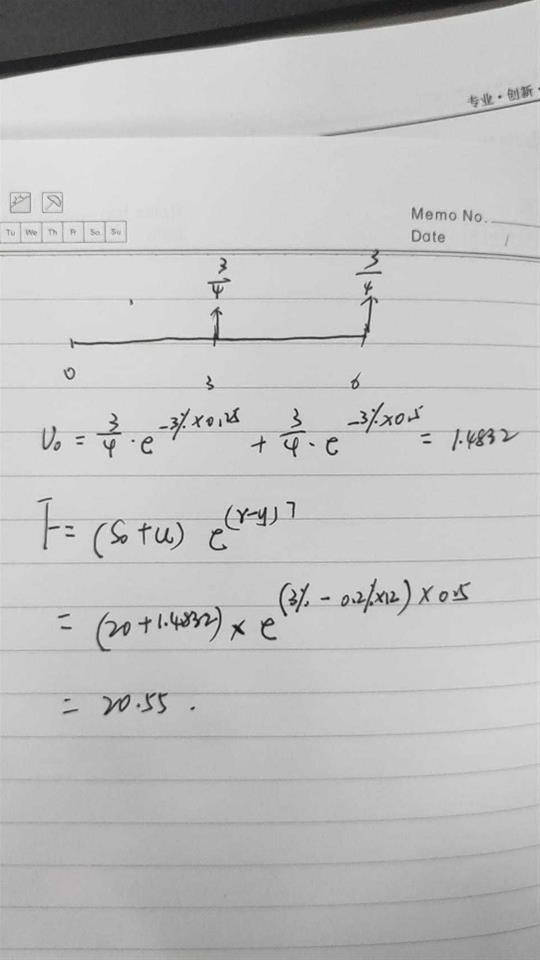 专业·创新·
Memo No.
Tu We Th Fr Sa Su
Date /
3/4 3/4
0 3 6
U₀ = 3/4 · e^(-3%×0.25) + 3/4 · e^(-3%×0.5) = 1.4832
F = (S₀+u) e^((r-y)T)
= (20+1.4832) × e^((3% - 0.2%×12) × 0.5)
= 20.55 .